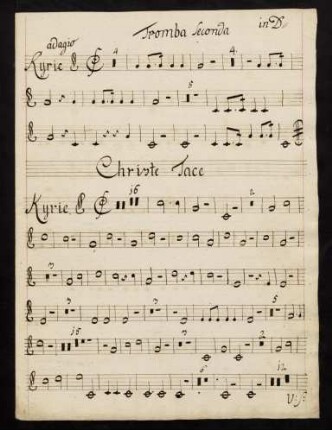 Tromba Seconda in D
adagio
Kyrie 4 4
5
Christe Tace
Kyrie 16 2
3
3 3 5
15 3 2
6 12
V:S: